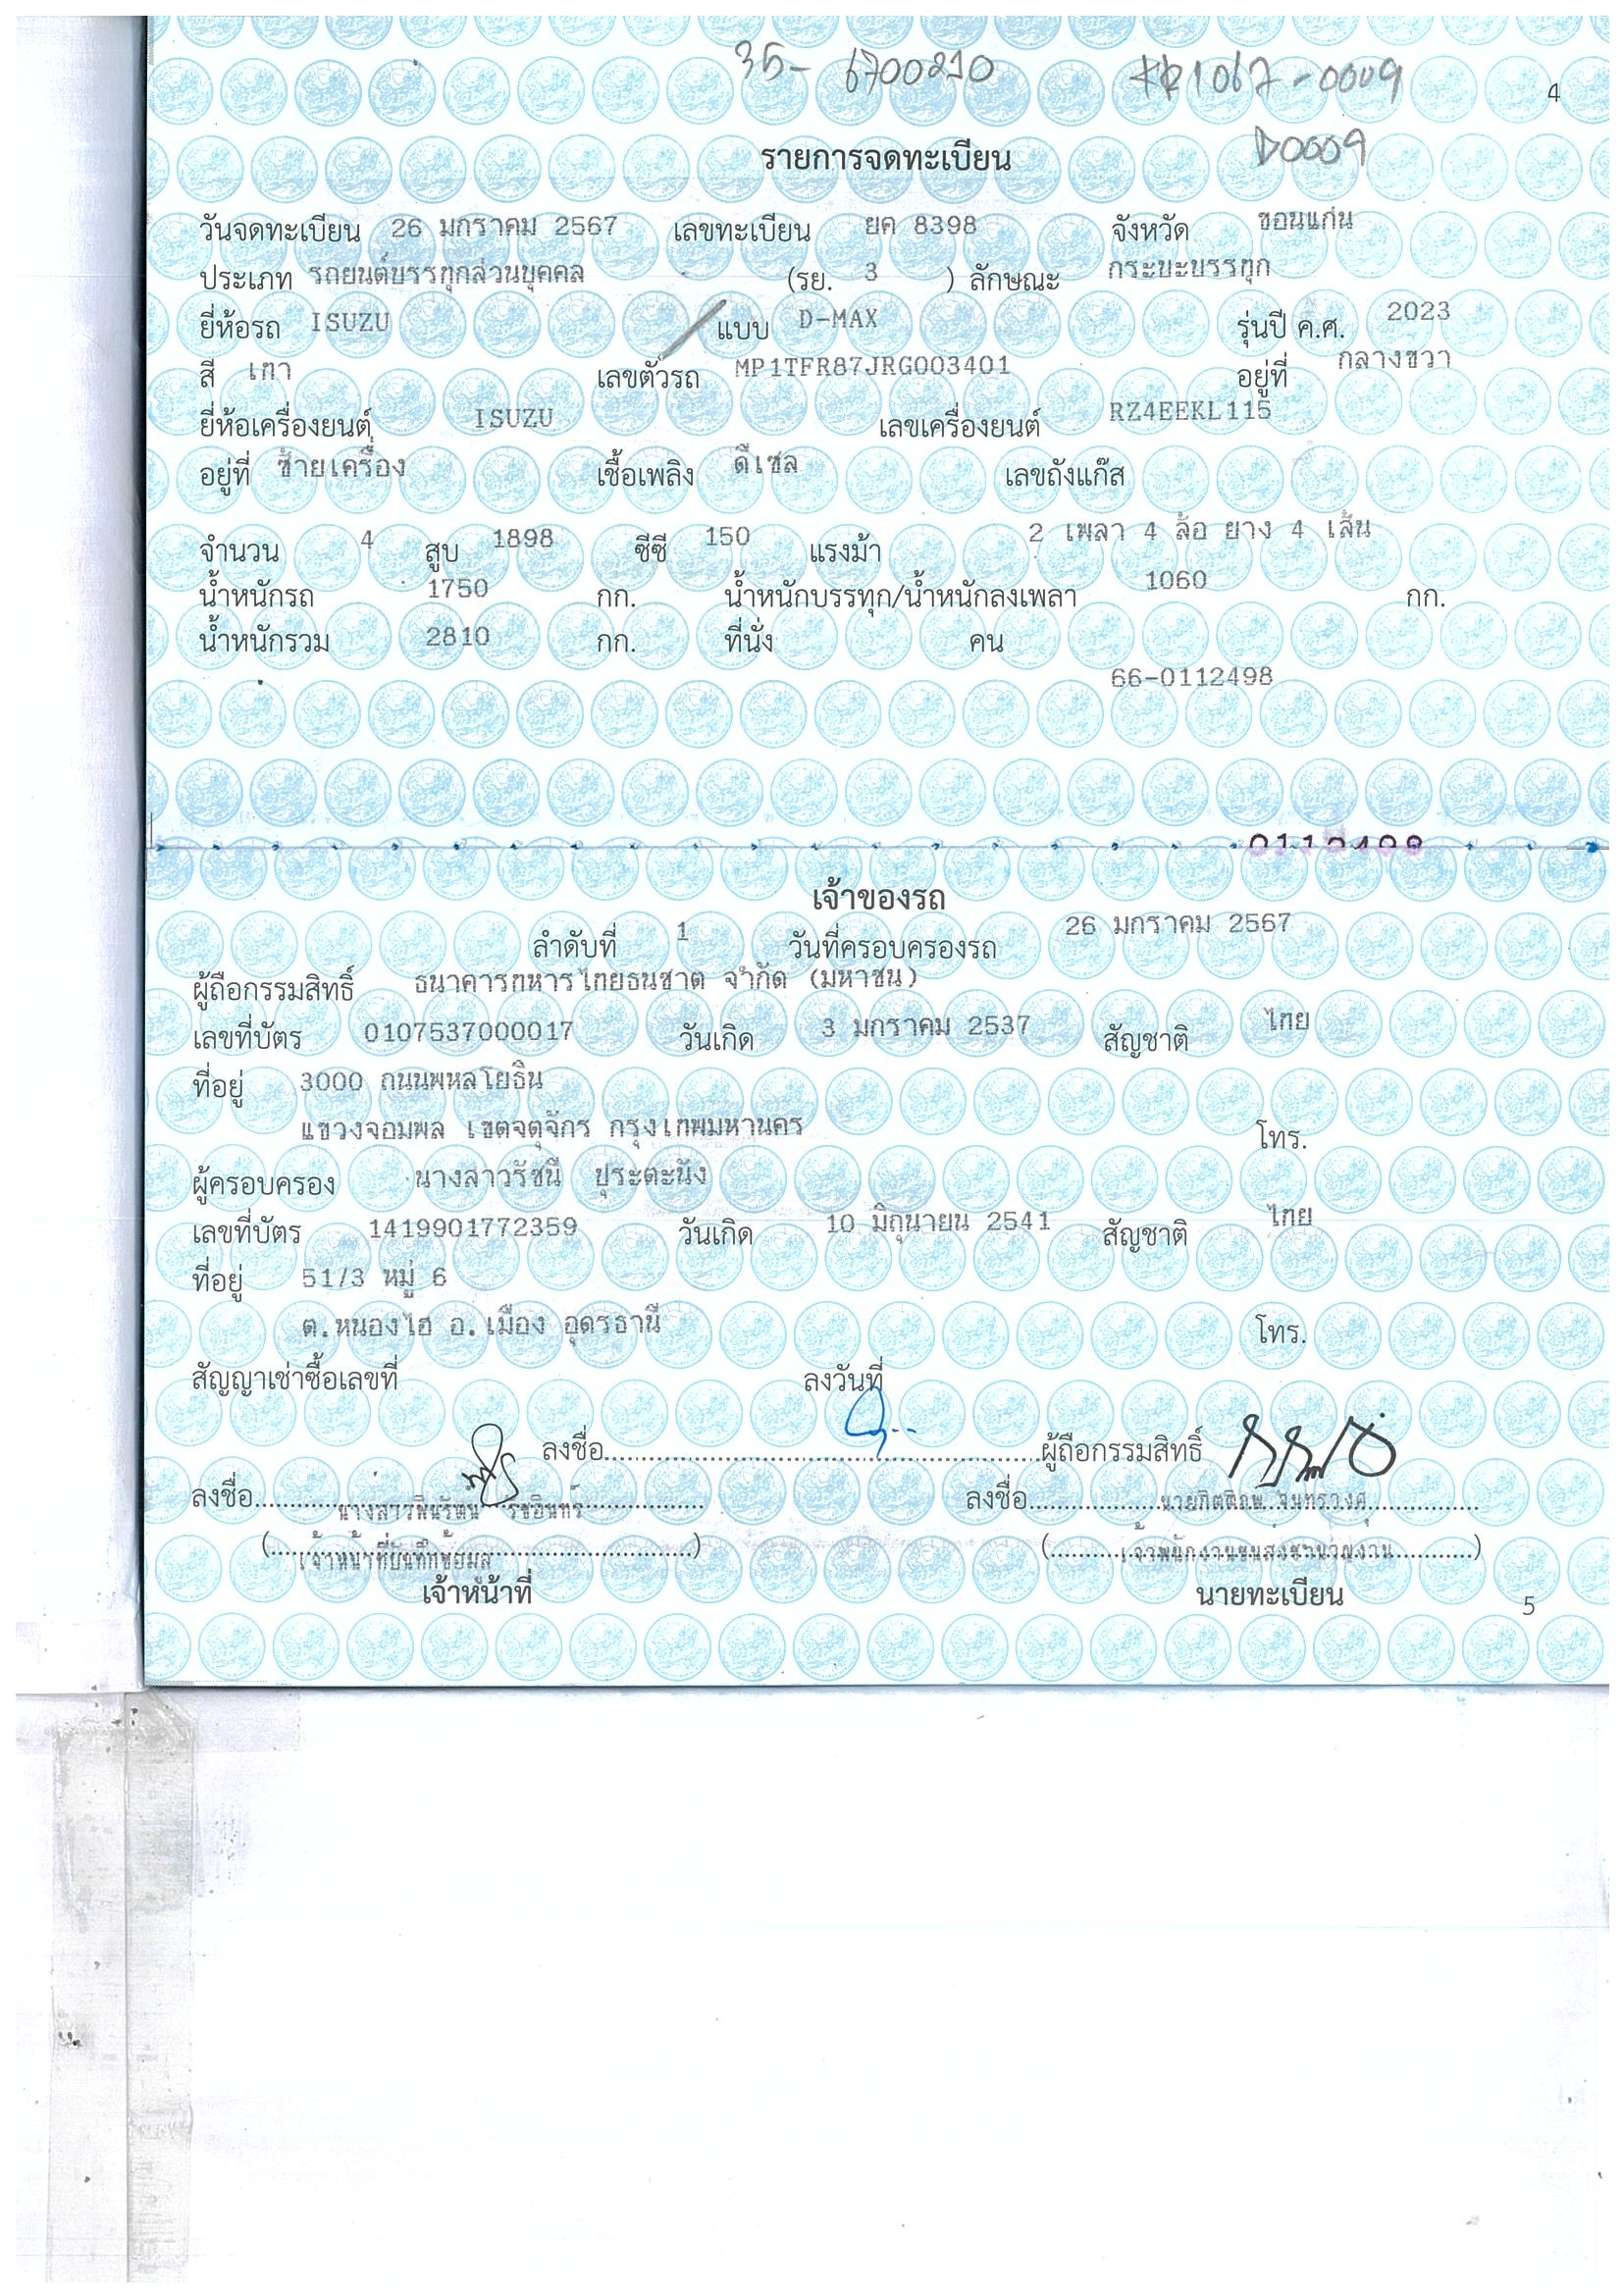 35- 6700210 KR1067-0009
4
D0009
รายการจดทะเบียน
วันจดทะเบียน 26 มกราคม 2567 เลขทะเบียน ยค 8398 จังหวัด ขอนแก่น
ประเภท รถยนต์บรรทุกส่วนบุคคล (รย. 3 ) ลักษณะ กระบะบรรทุก
ยี่ห้อรถ ISUZU แบบ D-MAX รุ่นปี ค.ศ. 2023
สี เทา เลขตัวรถ MP1TFR87JRG003401 อยู่ที่ กลางขวา
ยี่ห้อเครื่องยนต์ ISUZU เลขเครื่องยนต์ RZ4EEKL115
อยู่ที่ ซ้ายเครื่อง เชื้อเพลิง ดีเซล เลขถังแก๊ส
จำนวน 4 สูบ 1898 ซีซี 150 แรงม้า 2 เพลา 4 ล้อ ยาง 4 เส้น
น้ำหนักรถ 1750 กก. น้ำหนักบรรทุก/น้ำหนักลงเพลา 1060 กก.
น้ำหนักรวม 2810 กก. ที่นั่ง คน
66-0112498
0112498
เจ้าของรถ
ลำดับที่ 1 วันที่ครอบครองรถ 26 มกราคม 2567
ผู้ถือกรรมสิทธิ์ ธนาคารทหารไทยธนชาต จำกัด (มหาชน)
เลขที่บัตร 0107537000017 วันเกิด 3 มกราคม 2537 สัญชาติ ไทย
ที่อยู่ 3000 ถนนพหลโยธิน
แขวงจอมพล เขตจตุจักร กรุงเทพมหานคร โทร.
ผู้ครอบครอง นางสาวรัชนี ปุระตะนัง
เลขที่บัตร 1419901772359 วันเกิด 10 มิถุนายน 2541 สัญชาติ ไทย
ที่อยู่ 51/3 หมู่ 6
ต.หนองไฮ อ.เมือง อุดรธานี โทร.
สัญญาเช่าซื้อเลขที่ ลงวันที่
ลงชื่อ ผู้ถือกรรมสิทธิ์
ลงชื่อ นางสาวพินรัตน์ รัชอินทร์ ลงชื่อ นายกิตติภพ จันทรวงศุ
(เจ้าหน้าที่บันทึกข้อมูล) (เจ้าพนักงานขนส่งชำนาญงาน)
เจ้าหน้าที่ นายทะเบียน
5